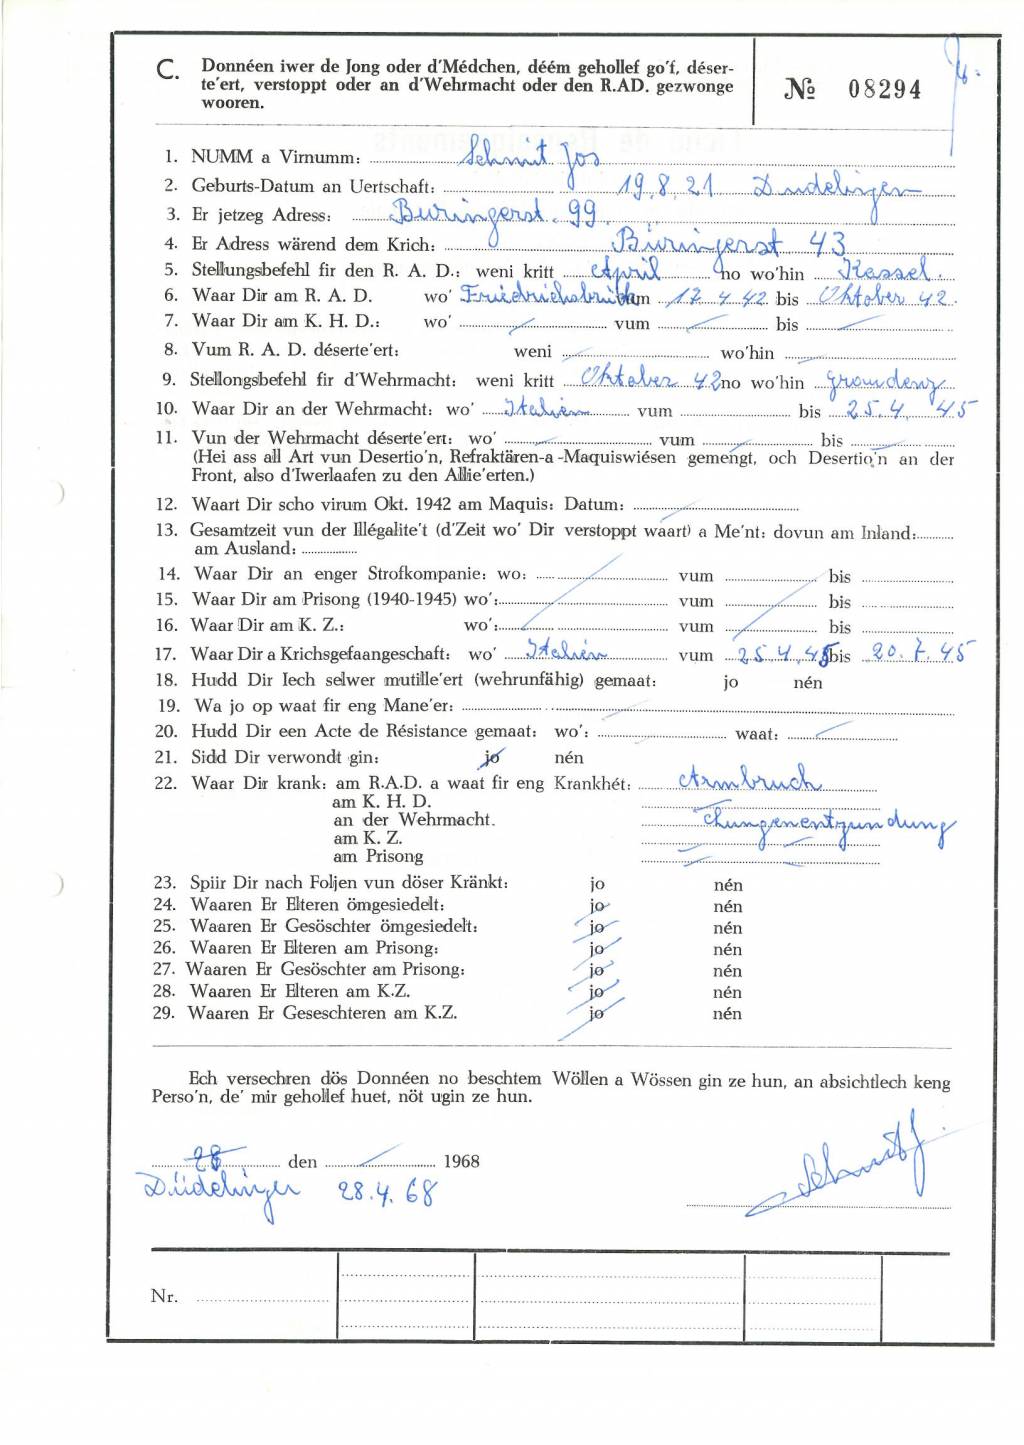 C. Donnéen iwer de Jong oder d'Médchen, déém gehollef go'f, déser-
te'ert, verstoppt oder an d'Wehrmacht oder den R.AD. gezwonge
wooren.
№ 08294
1. NUMM a Virnumm: Schmit Jos
2. Geburts-Datum an Uertschaft: 19.8.21 Düdelingen
3. Er jetzeg Adress: Büringerst. 99.
4. Er Adress wärend dem Krich: Büringerst 43
5. Stellungsbefehl fir den R. A. D.: weni kritt April no wo'hin Kassel.
6. Waar Dir am R. A. D. wo' Friedrichsbrück vum 17.4.42 bis Oktober 42.
7. Waar Dir am K. H. D.: wo' vum bis
8. Vum R. A. D. déserte'ert: weni wo'hin
9. Stellongsbefehl fir d'Wehrmacht: weni kritt Oktober 42 no wo'hin Graudenz
10. Waar Dir an der Wehrmacht: wo' Italien vum bis 25.4.45
11. Vun der Wehrmacht déserte'ert: wo' vum bis
(Hei ass all Art vun Desertio'n, Refraktären-a -Maquiswiésen gemengt, och Desertio'n an der
Front, also d'Iwerlaafen zu den Allie'erten.)
12. Waart Dir scho virum Okt. 1942 am Maquis: Datum:
13. Gesamtzeit vun der Illégalite't (d'Zeit wo' Dir verstoppt waart) a Me'nt: dovun am Inland:
am Ausland:
14. Waar Dir an enger Strofkompanie: wo: vum bis
15. Waar Dir am Prisong (1940-1945) wo': vum bis
16. Waar Dir am K. Z.: wo': vum bis
17. Waar Dir a Krichsgefaangeschaft: wo' Italien vum 25.4.45 bis 20.7.45
18. Hudd Dir Iech selwer mutille'ert (wehrunfähig) gemaat: jo nén
19. Wa jo op waat fir eng Mane'er:
20. Hudd Dir een Acte de Résistance gemaat: wo': waat:
21. Sidd Dir verwondt gin: jo nén
22. Waar Dir krank: am R.A.D. a waat fir eng Krankhét: Armbruch
am K. H. D.
an der Wehrmacht. Lungenentzundung
am K. Z.
am Prisong
23. Spiir Dir nach Foljen vun döser Kränkt: jo nén
24. Waaren Er Elteren ömgesiedelt: jo nén
25. Waaren Er Gesöschter ömgesiedelt: jo nén
26. Waaren Er Elteren am Prisong: jo nén
27. Waaren Er Gesöschter am Prisong: jo nén
28. Waaren Er Elteren am K.Z. jo nén
29. Waaren Er Geseschteren am K.Z. jo nén
Ech versechren dös Donnéen no beschtem Wöllen a Wössen gin ze hun, an absichtlech keng
Perso'n, de' mir gehollef huet, nöt ugin ze hun.
28 den 1968
Düdelingen 28.4.68
Schmit J.
Nr.